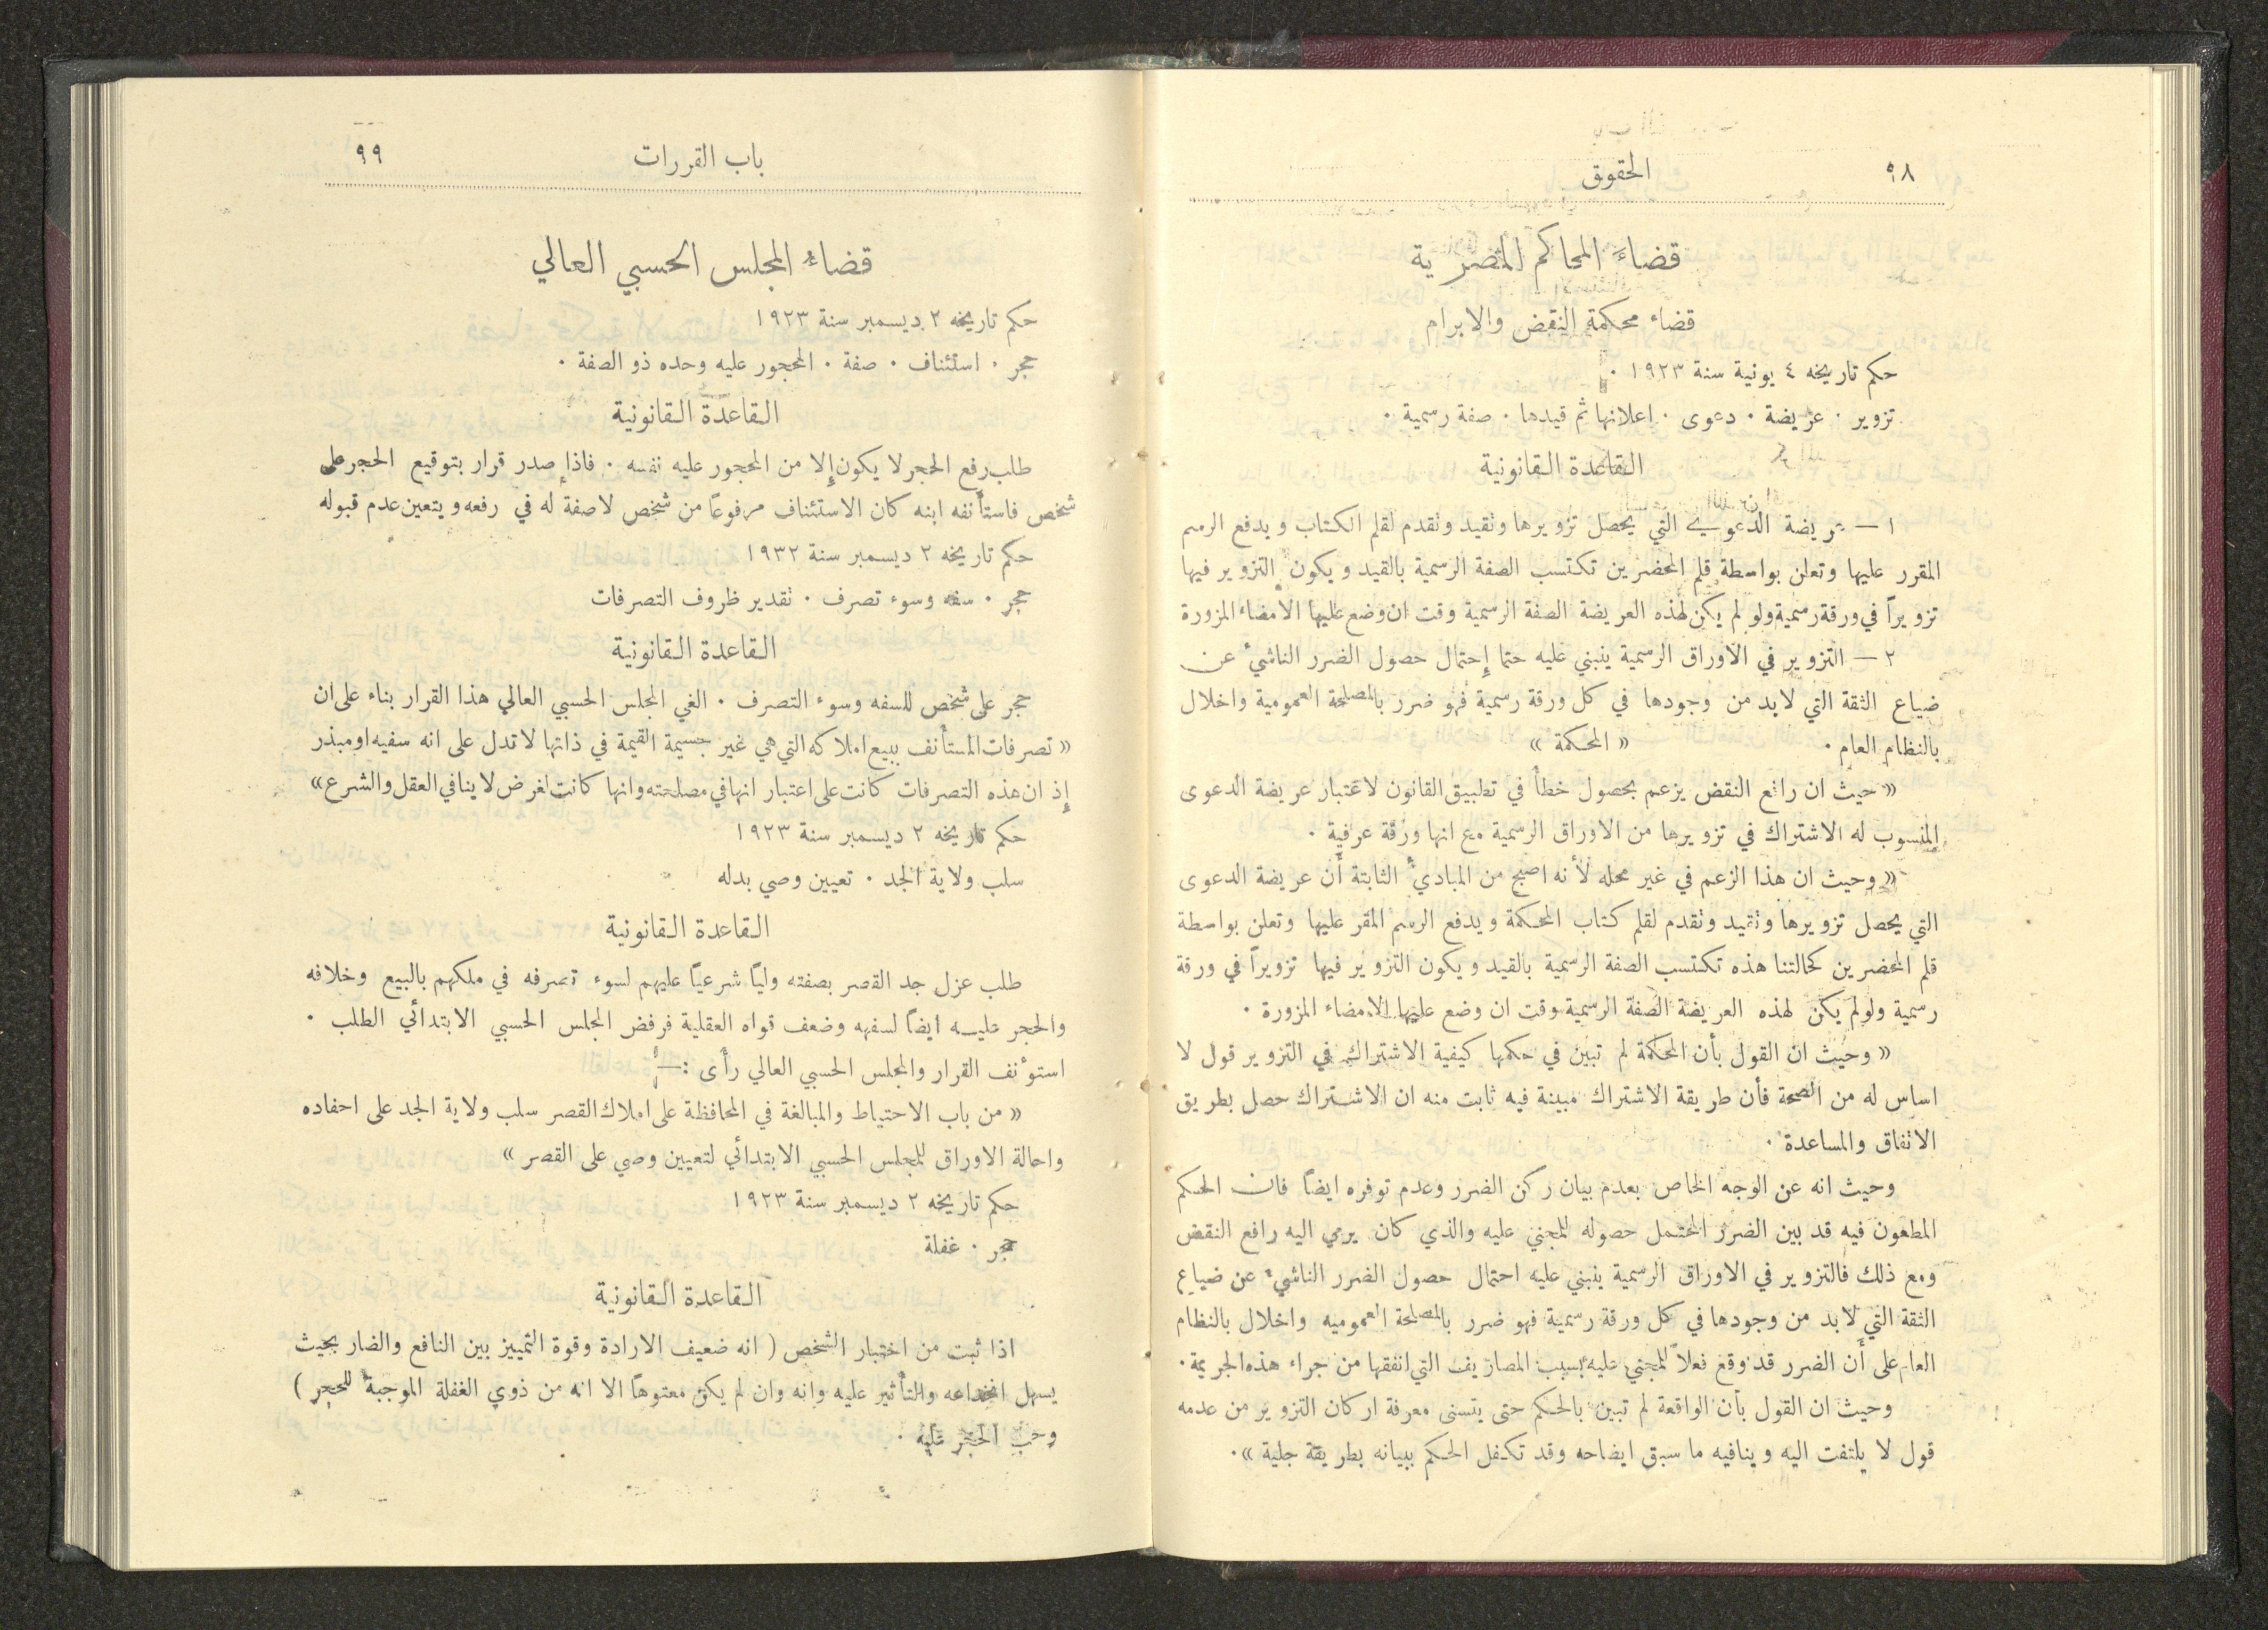 ٩٨
الحقوق
قضاء المحاكم المصرية
قضاء محكمة النقض والابرام
حكم تاريخه ٤ يونية سنة ١٩٢٣ .
تزوير . عريضة . دعوى . اعلانها ثم قيدها . صفة رسمية .
القاعدة القانونية
١ — عريضة الدعوى التي يحصل تزويرها وتقيد وتقدم لقلم الكتاب ويدفع الرسم
المقرر عليها وتعلن بواسطة قلم المحضرين تكتسب الصفة الرسمية بالقيد ويكون التزوير فيها
تزويراً في ورقة رسمية ولو لم يكن لهذه العريضة الصفة الرسمية وقت ان وضع عليها الامضاء المزورة
٢ — التزوير في الاوراق الرسمية ينبني عليه حتما إحتمال حصول الضرر الناشيء عن
ضياع الثقة التي لابد من وجودها في كل ورقة رسمية فهو ضرر بالمصلحة العمومية واخلال
بالنظام العام . « المحكمة »
« حيث ان رافع النقض يزعم بحصول خطأ في تطبيق القانون لاعتبار عريضة الدعوى
المنسوب له الاشتراك في تزويرها من الاوراق الرسمية مع انها ورقة عرفية .
« وحيث ان هذا الزعم في غير محله لأنه اصبح من المبادئ الثابتة أن عريضة الدعوى
التي يحصل تزويرها وتقيد وتقدم لقلم كتاب المحكمة ويدفع الرسم المقر عليها وتعلن بواسطة
قلم المحضرين كحالتنا هذه تكتسب الصفة الرسمية بالقيد ويكون التزوير فيها تزويراً في ورقة
رسمية ولو لم يكن لهذه العريضة الصفة الرسمية وقت ان وضع عليها الامضاء المزورة .
« وحيث ان القول بأن المحكمة لم تبين في حكمها كيفية الاشتراك في التزوير قول لا
اساس له من الصحة فأن طريقة الاشتراك مبينة فيه ثابت منه ان الاشتراك حصل بطريق
الاتفاق والمساعدة .
وحيث انه عن الوجه الخاص بعدم بيان ركن الضرر وعدم توفره ايضاً فان الحكم
المطعون فيه قد بين الضرر المحتمل حصوله للمجني عليه والذي كان يرمي اليه رافع النقض
ومع ذلك فالتزوير في الاوراق الرسمية ينبني عليه احتمال حصول الضرر الناشيء عن ضياع
الثقة التي لابد من وجودها في كل ورقة رسمية فهو ضرر بالمصلحة العموميه واخلال بالنظام
العام على أن الضرر قد وقع فعلاً للمجني عليه بسبب المصاريف التي انفقها من جراء هذه الجريمة .
وحيث ان القول بأن الواقعة لم تبين بالحكم حتى يتسنى معرفة اركان التزوير من عدمه
قول لا يلتفت اليه وينافيه ما سبق ايضاحه وقد تكفل الحكم ببيانه بطريقة جلية » .
باب القررات
٩٩
قضاء المجلس الحسبي العالي
حكم تاريخه ٢ ديسمبر سنة ١٩٢٣
حجر . استئناف . صفة . المحجور عليه وحده ذو الصفة .
القاعدة القانونية
طلب رفع الحجر لا يكون إلا من المحجور عليه نفسه . فاذا صدر قرار بتوقيع الحجر على
شخص فاستأنفه ابنه كان الاستئناف مرفوعاً من شخص لاصفة له في رفعه ويتعين عدم قبوله
حكم تاريخه ٢ ديسمبر سنة ١٩٣٢
حجر . سفه وسوء تصرف . تقدير ظروف التصرفات
القاعدة القانونية
حجر على شخص للسفه وسوء التصرف . الغي المجلس الحسبي العالي هذا القرار بناء على ان
« تصرفات المستأنف ببيع املاكه التي هي غير جسيمة القيمة في ذاتها لاتدل على انه سفيه او مبذر
إذ ان هذه التصرفات كانت على اعتبار انها في مصلحته وانها كانت لغرض لا ينافي العقل والشرع »
حكم تاريخه ٢ ديسمبر سنة ١٩٢٣
سلب ولاية الجد . تعيين وصي بدله
القاعدة القانونية
طلب عزل جد القصر بصفته وليًا شرعيًا عليهم لسوء تصرفه في ملكهم بالبيع وخلافه
والحجر عليه ايضاً لسفهه وضعف قواه العقلية فرفض المجلس الحسبي الابتدائي الطلب .
استؤنف القرار والمجلس الحسبي العالي رأى :—
« من باب الاحتياط والمبالغة في المحافظة على املاك القصر سلب ولاية الجد على احفاده
واحالة الاوراق للمجلس الحسبي الابتدائي لتعيين وصي على القصر »
حكم تاريخه ٢ ديسمبر سنة ١٩٢٣
حجر . غفلة
القاعدة القانونية
اذا ثبت من اختبار الشخص ( انه ضعيف الارادة وقوة التمييز بين النافع والضار بحيث
يسهل انخداعه والتأثير عليه وانه وان لم يكن معتوهاً الا انه من ذوي الغفلة الموجبة للحجر )
وجب الحجر عليه .